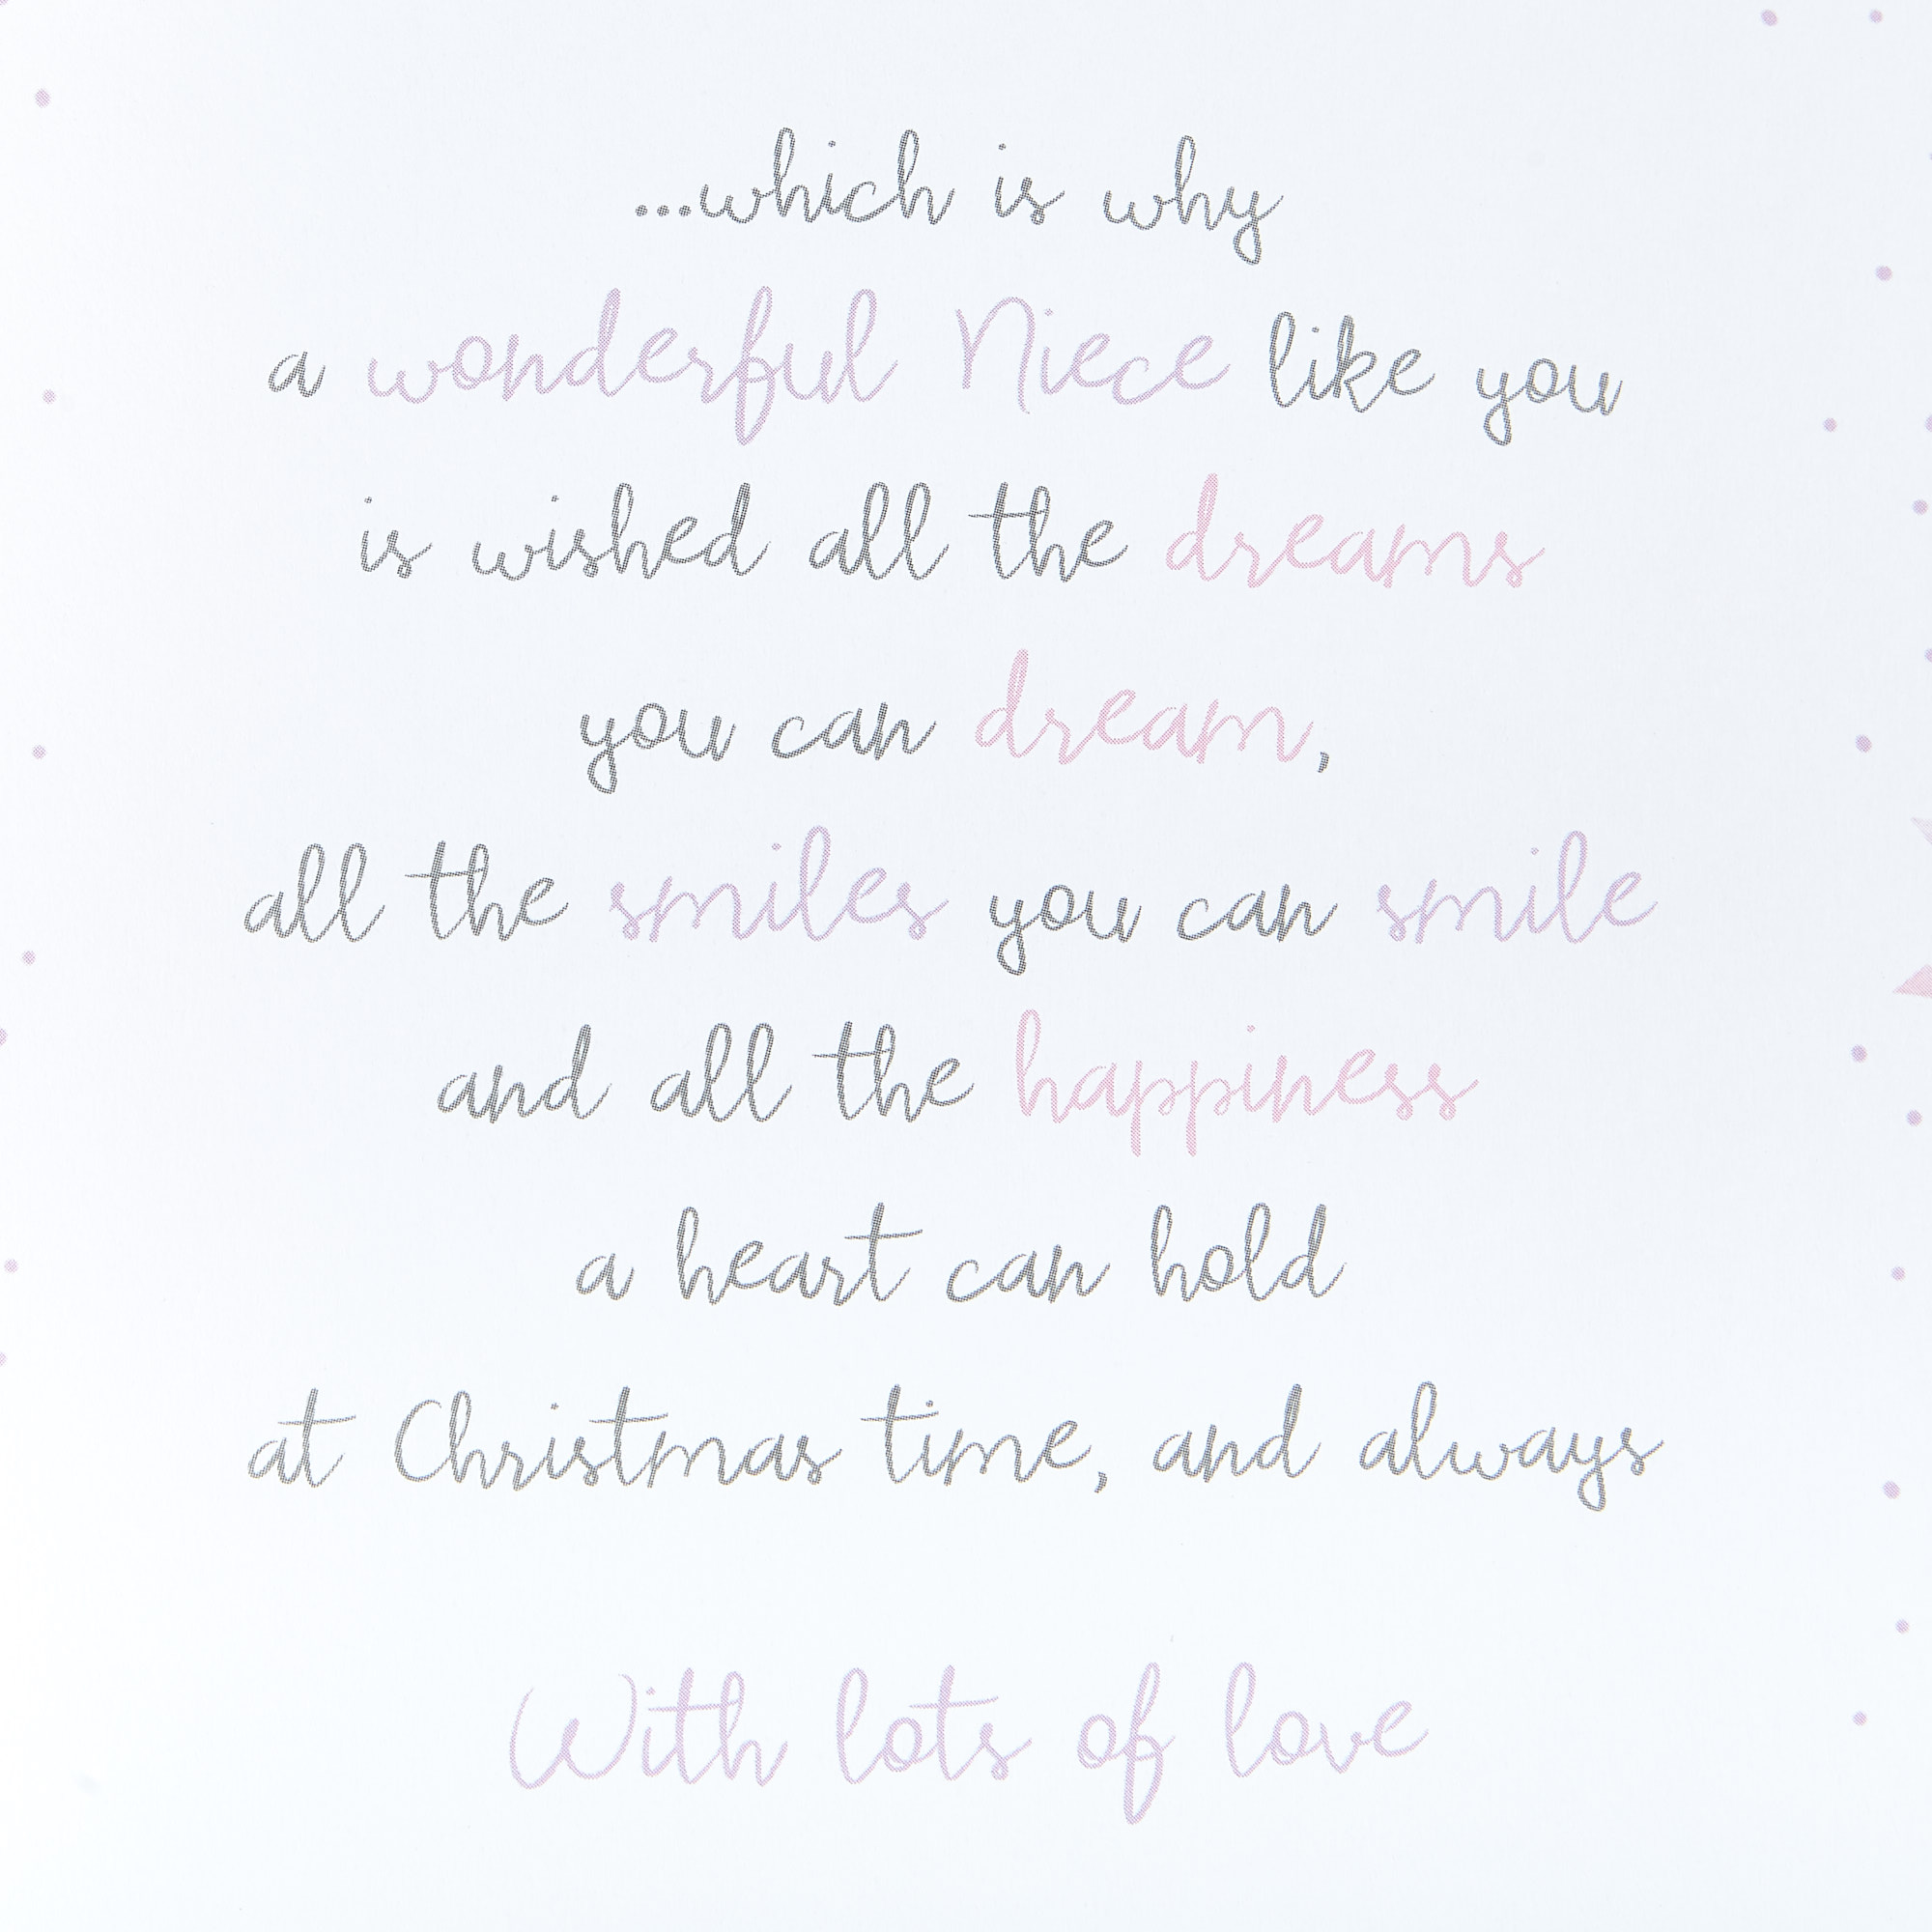 ...which is why
a wonderful Niece like you
is wished all the dreams
you can dream,
all the smiles you can smile
and all the happiness
a heart can hold
at Christmas time, and always
With lots of love